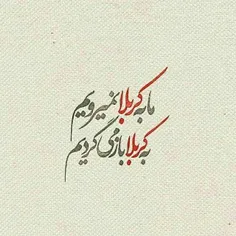 ما به کربلا نمیرویم
به کربلا باز می گردیم